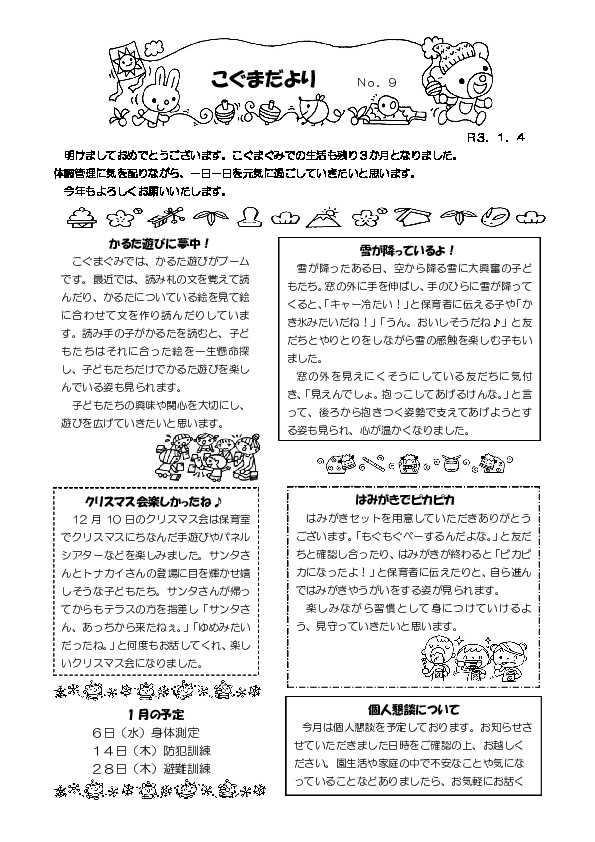 こぐまだより No. 9
R3. 1. 4
明けましておめでとうございます。こぐまぐみでの生活も残り3か月となりました。
体調管理に気を配りながら、一日一日を元気に過ごしていきたいと思います。
今年もよろしくお願いいたします。
かるた遊びに夢中！
こぐまぐみでは、かるた遊びがブーム
です。最近では、読み札の文を覚えて読
んだり、かるたについている絵を見て絵
に合わせて文を作り読んだりしていま
す。読み手の子がかるたを読むと、子ど
もたちはそれに合った絵を一生懸命探
し、子どもたちだけでかるた遊びを楽し
んでいる姿も見られます。
子どもたちの興味や関心を大切にし、
遊びを広げていきたいと思います。
雪が降っているよ！
雪が降ったある日、空から降る雪に大興奮の子ど
もたち。窓の外に手を伸ばし、手のひらに雪が降って
くると、「キャー冷たい！」と保育者に伝える子や「か
き氷みたいだね！」「うん。おいしそうだね♪」と友
だちとやりとりをしながら雪の感触を楽しむ子もい
ました。
窓の外を見えにくそうにしている友だちに気付
き、「見えんでしょ。抱っこしてあげるけんな。」と言
って、後ろから抱きつく姿勢で支えてあげようとす
る姿も見られ、心が温かくなりました。
クリスマス会楽しかったね♪
12月10日のクリスマス会は保育室
でクリスマスにちなんだ手遊びやパネル
シアターなどを楽しみました。サンタさ
んとトナカイさんの登場に目を輝かせ嬉
しそうな子どもたち。サンタさんが帰っ
てからもテラスの方を指差し「サンタさ
ん、あっちから来たねぇ。」「ゆめみたい
だったね。」と何度もお話してくれ、楽し
いクリスマス会になりました。
はみがきでピカピカ
はみがきセットを用意していただきありがとう
ございます。「もぐもぐぺーするんだよな。」と友だ
ちと確認し合ったり、はみがきが終わると「ピカピ
カになったよ！」と保育者に伝えたりと、自ら進ん
ではみがきやうがいをする姿が見られます。
楽しみながら習慣として身につけていけるよ
う、見守っていきたいと思います。
1月の予定
6日（水）身体測定
14日（木）防犯訓練
28日（木）避難訓練
個人懇談について
今月は個人懇談を予定しております。お知らせさ
せていただきました日時をご確認の上、お越しく
ださい。園生活や家庭の中で不安なことや気にな
っていることなどありましたら、お気軽にお話く